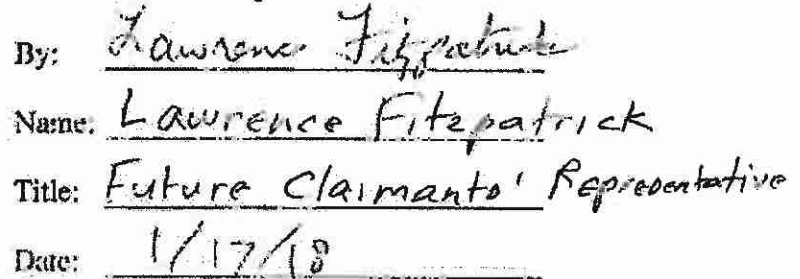 By: Lawrence Fitzpatrick
Name: Lawrence Fitzpatrick
Title: Future Claimants' Representative
Date: 1/17/18